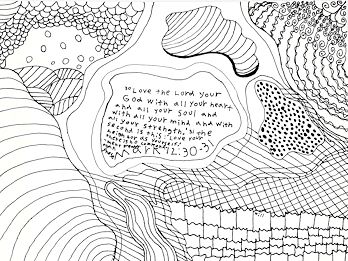 "Love the Lord your
God with all your heart
and all your soul and
with all your mind and with
all your strength.' 31 The
second is this: 'Love your
neighbor as yourself.'
Mark 12:30-31